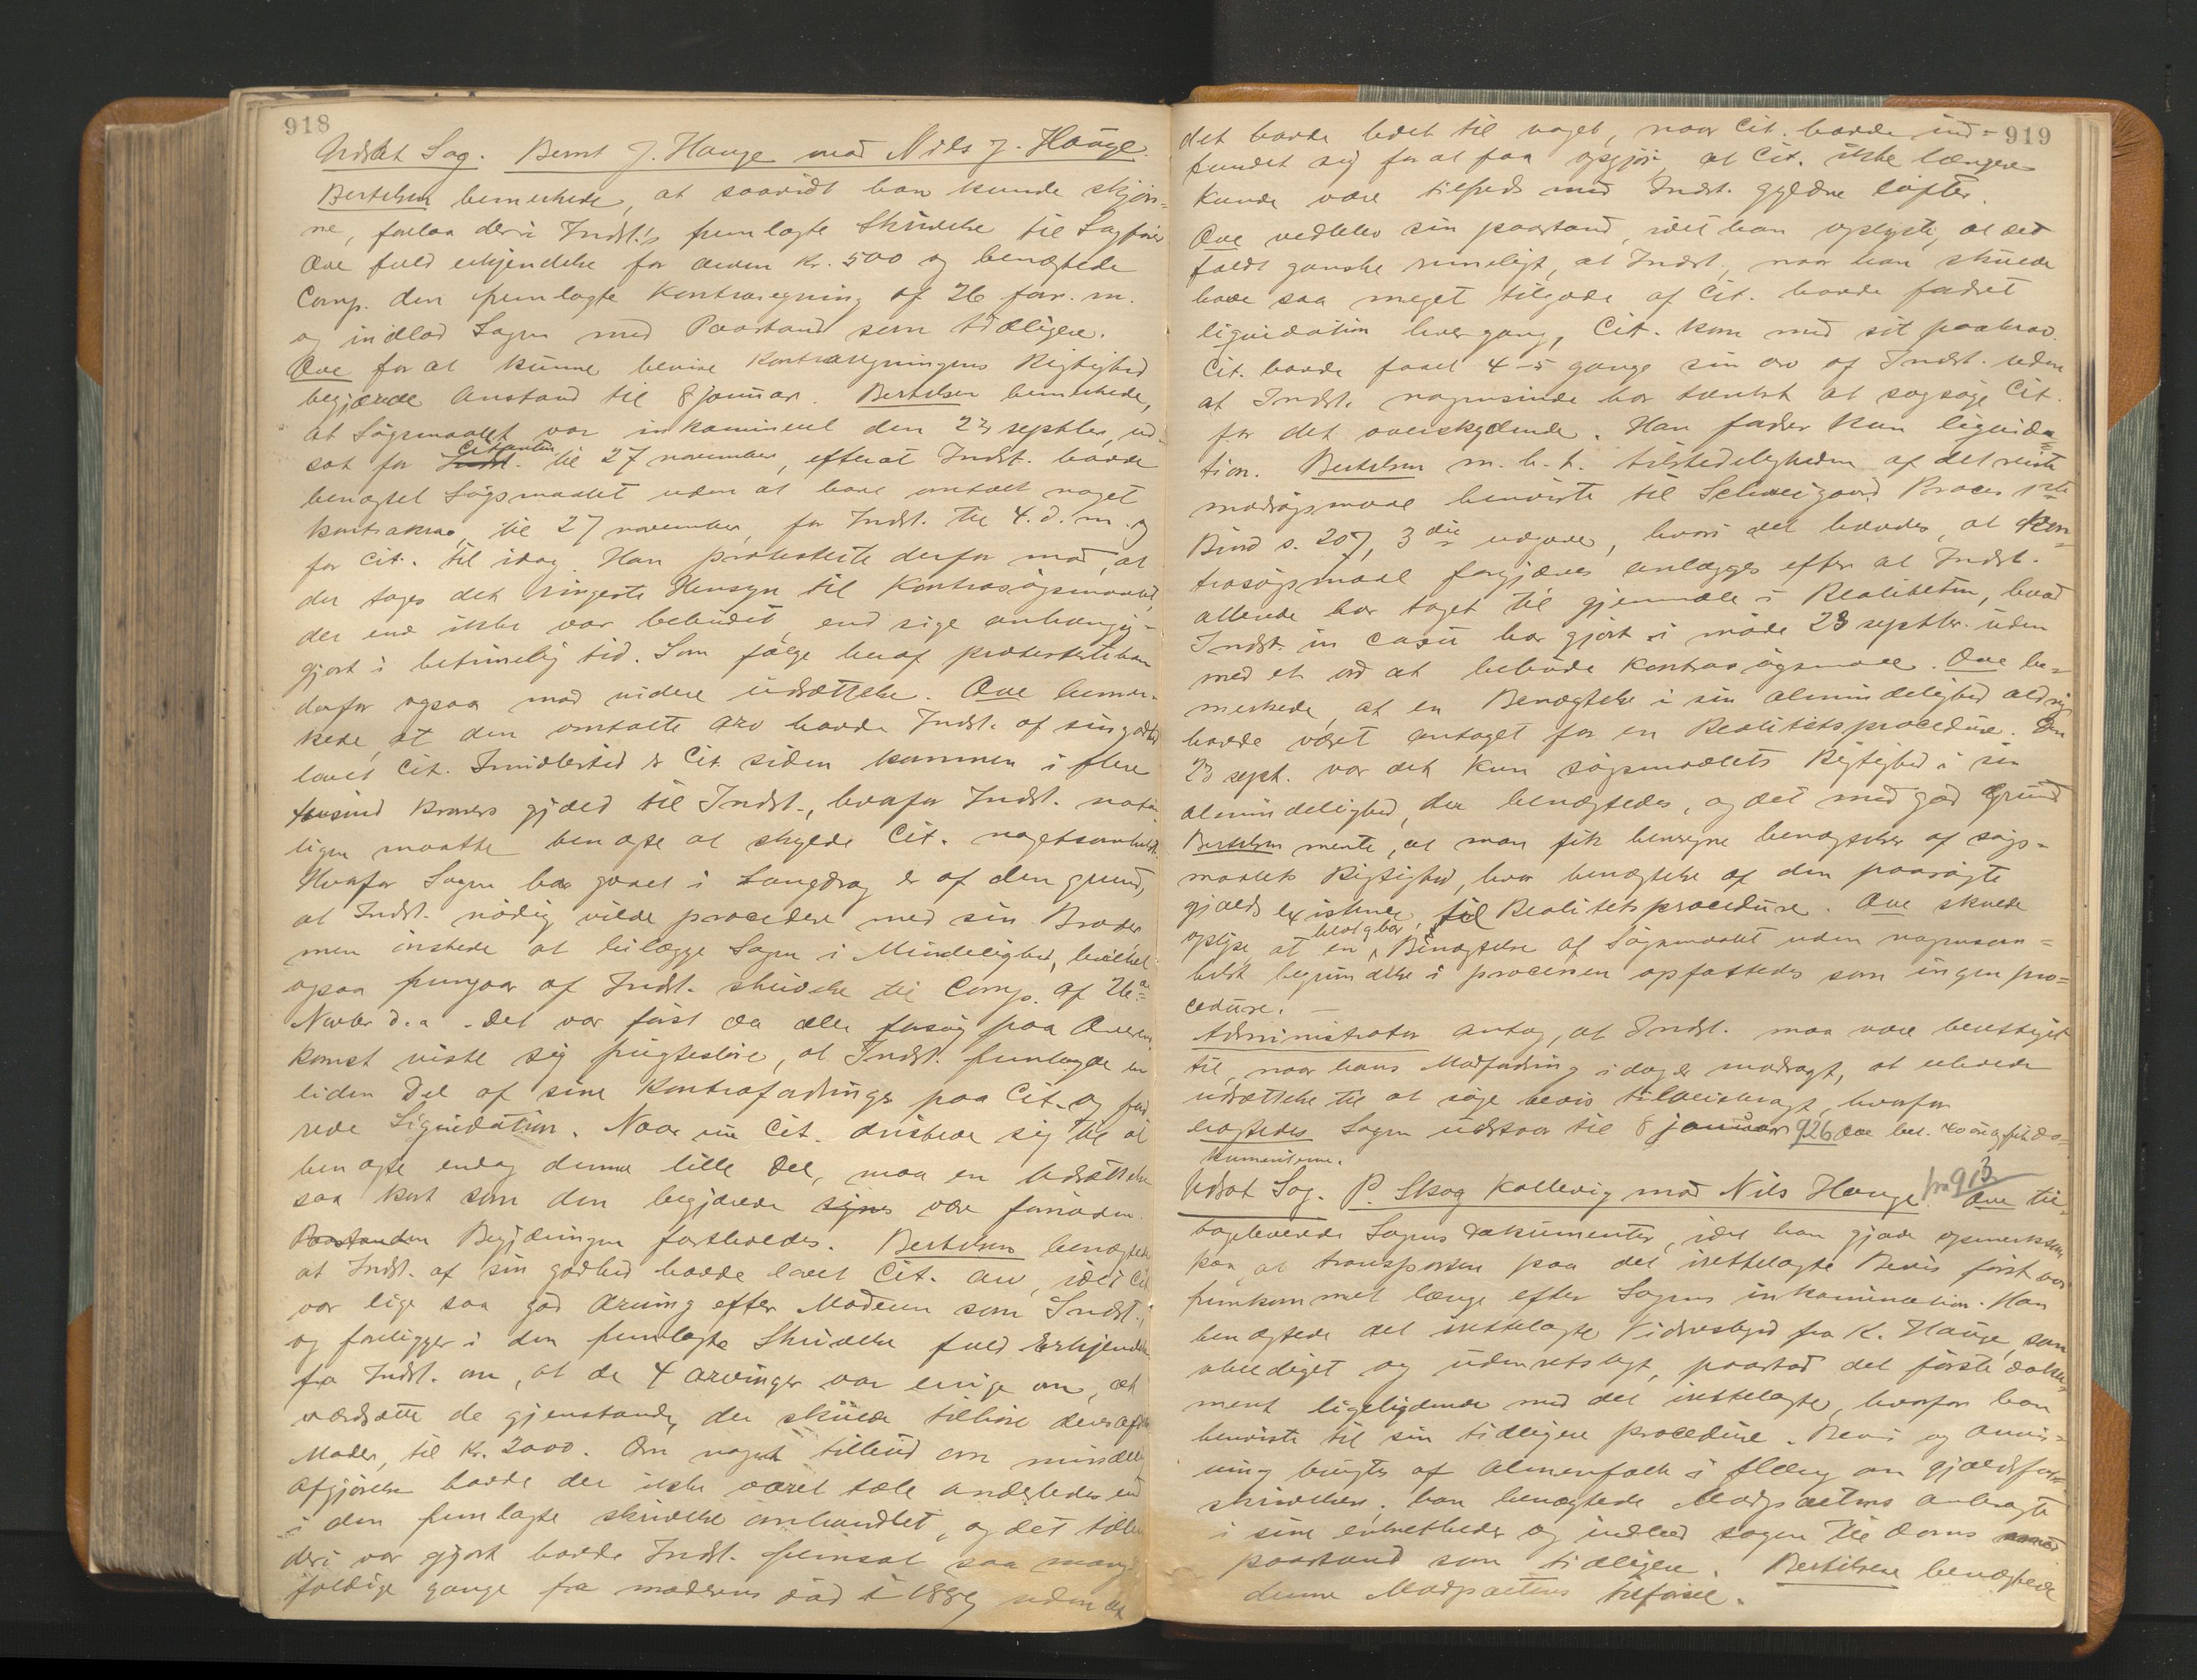 918
Udsat Sag. Bernt J. Hauge mod Nils J. Hauge.
Bertelsen bemerkede, at saavidt han kunde skjøn=
ne, forelaa der i Indst.'s fremlagte Skrivelse til Sagfører
Ove fuld erkjendelse for arven Kr. 500 og benægtede
Comp. den fremlagte Kontraregning af 26 for. m.
og indlod Sagen med Paastand som tidligere.
Ove for at kunne bevise Kontraregningens Rigtighed
begjærede Anstand til 8 januar. Bertelsen bemerkede,
at Søgsmaalet var inkamineret den 23 septbr, ud-
sat for Citanten til 27 november, efterat Indst. havde
benægtet Søgsmaalet uden at have omtalt noget
kontrakrav, til 27 november, for Indst. til 4. d. m. og
for Cit. til idag. Han protesterte derfor mod, at
der toges det ringeste Hensyn til Kontrasøgsmaalet,
der end ikke var bebudet, end sige anhængig-
gjort i betimelig tid. Som følge heraf protesterte han
derfor ogsaa mod videre udsættelse. Ove bemær-
kede, at den omtalte arv havde Indst. af sin godhed
lovet Cit. Imidlertid er Cit. siden kommen i flere
tusind kroners gjæld til Indst., hvorfor Indst. natur-
ligen maatte benægte at skylde Cit. nogetsomhelst.
Hvorfor Sagen har gaaet i Langdrag er af den grund,
at Indst. nødig vilde procedere med sin Broder
men ønskede at bilægge Sagen i Mindelighed, hvilket
ogsaa fremgaar af Indst. skrivelse til Comp. af 26de
Novbr d. a. Det var først da alle forsøg paa Overens-
komst viste sig frugtesløse, at Indst. fremlagde en
liden Del af sine Kontrafordringer paa Cit. og ford-
rede Liquidation. Naar nu Cit. dristede sig til at
benægte endog denne lille Del, maa en Udsættelse
saa kort som den begjærede være fornøden.
Begjæringen fastholdes. Bertelsen benægtede
at Indst. af sin godhed havde lovet Cit. arv, idet Cit.
var lige saa god Arving efter Moderen som Indst.,
og foreligger i den fremlagte Skrivelse fuld Erkjendelse
fra Indst. om, at de 4 arvinger var enige om, at
værdsætte de gjenstande, der skulde tilhøre deres afdøde
Moder, til Kr. 2000. Om noget tilbud om mindelig
Afgjørelse havde der ikke været tale anderledes end
i den fremlagte skrivelse omhandlet, og det tilbud
deri var gjort havde Indst. fremsat saa mang-
foldige gange fra moderens død i 1889 uden at
919
det havde ledet til noget, naar Cit. havde ind=
fundet sig for at faa opgjør, at Cit. ikke længere
kunde være tilfreds med Indst. gyldne løfter.
Ove vedblev sin paastand, idet han oplyste, at det
faldt ganske rimeligt, at Indst., naar han skulde
have saa meget tilgode af Cit. havde fordret
liquidation hver gang, Cit. kom med sit paakrav.
Cit. havde faaet 4-5 gange sin arv af Indst. uden
at Indst. nogensinde har tænkt at sagsøge Cit.
for det overskydende. Han fordrer kun liquida=
tion. Bertelsen m. h. t. tilstedeligheden af det reiste
modsøgsmaal henviste til Schweigaard Proces 1ste
Bind s. 207, 3die udgave, hvori det hævdes, at kon=
trasøgsmaal forgjæves anlægges efter at Indst.
allerede har taget til gjenmæle i Realiteten, hvad
Indst. in casu har gjort i møde 23 septbr. uden
med et ord at bebude Kontrasøgsmaal. Ove be=
merkede, at en Benægtelse i sin almindelighed aldrig
havde været antaget for en Realitetsprocedure. Den
23 sept. var det kun søgsmaalets Rigtighed i sin
almindelighed, der benægtedes, og det med god Grund
Bertelsen mente, at man fik henregne benægtelse af søgs=
maalets Rigtighed, hvor benægtelse af den paasøgte
gjælds existence, til Realitetsprocedure. Ove skulde
oplyse, at en blot og bar Benægtelse af Søgsmaalet uden nogensom=
helst begrundelse i processen opfattedes som ingen pro=
cedure. —
Administrator antog, at Indst. maa være berettiget
til, naar hans Modfordring idag er modsagt, at erholde
udsættelse til at søge bevis tilveiebragt, hvorfor
eragtedes Sagen udstaar til 8 januar 926 Ove bet. 40 øre og fik do=
kumenterne.
Udsat Sag. P. Skog Kallevig mod Nils Hauge. fra 913 Ove til-
bageleverede Sagens dokumenter, idet han gjorde opmerksom
paa, at transporten paa det irettelagte Bevis først var
fremkommet længe efter Sagens inkamination. Han
benægtede det irettelagte Vidnesbyrd fra K. Hauge, som
ubeediget og udenretsligt, paastod det første doku-
ment ligelydende med det irettelagte, hvorfor han
henviste til sin tidligere procedure. Bevis og anvis=
ning brugtes af Almenfolk i flæng om gjældsfor=
skrivelser; han benægtede Modpartens anbragte
i sine enkeltheder og indlod sagen til doms
paastand som tidligere. Bertelsen benægtede
denne Modpartens tilførsel.